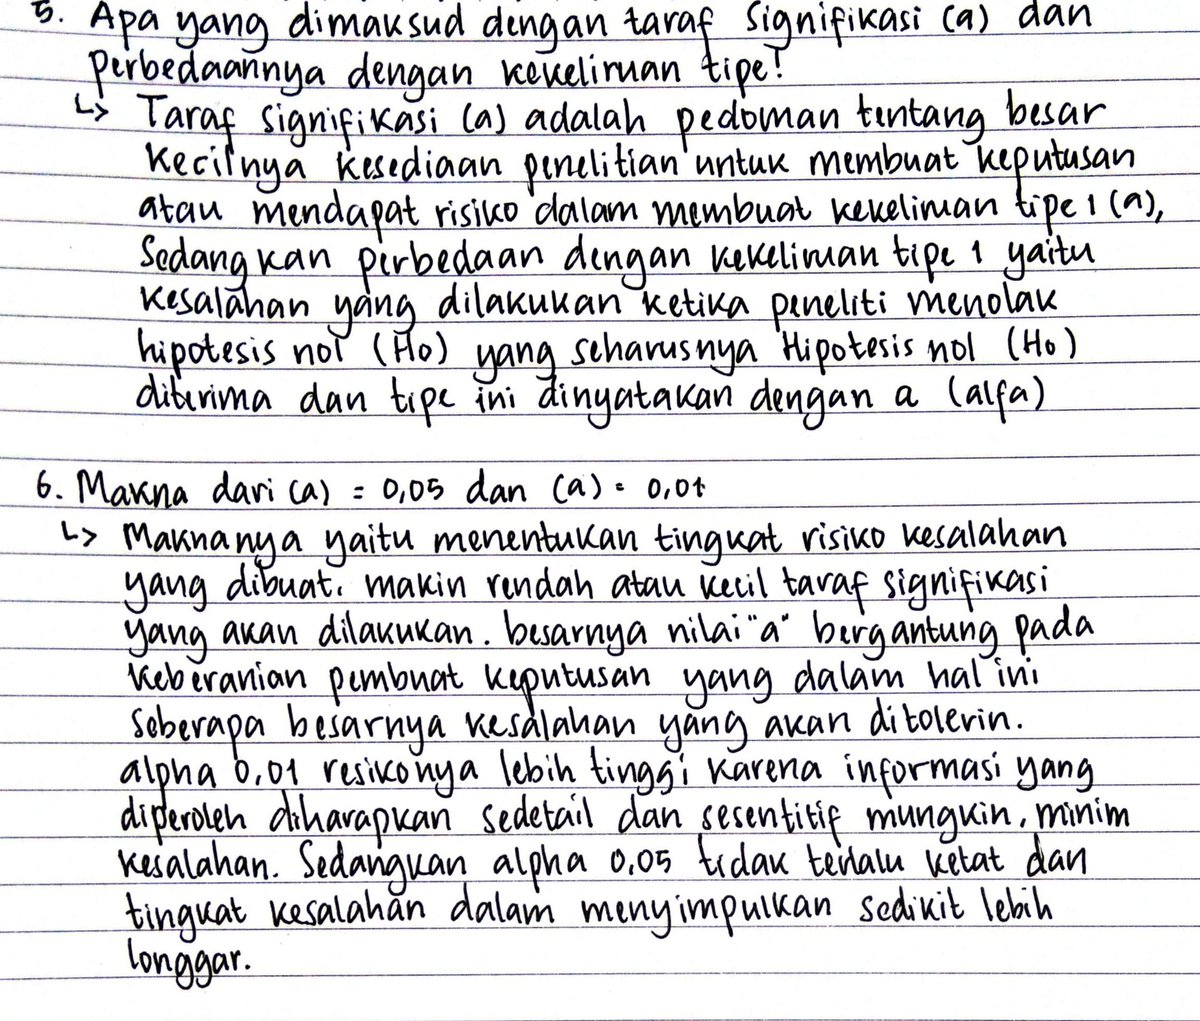 5. Apa yang dimaksud dengan taraf signifikasi (a) dan
perbedaannya dengan kekeliruan tipe!
↳ Taraf signifikasi (a) adalah pedoman tentang besar
kecilnya kesediaan penelitian untuk membuat keputusan
atau mendapat risiko dalam membuat kekeliruan tipe 1 (a),
Sedangkan perbedaan dengan kekeliruan tipe 1 yaitu
kesalahan yang dilakukan ketika peneliti menolak
hipotesis nol (Ho) yang seharusnya Hipotesis nol (Ho)
diterima dan tipe ini dinyatakan dengan a (alfa)
6. Makna dari (a) = 0,05 dan (a) = 0,01
↳ Maknanya yaitu menentukan tingkat risiko kesalahan
yang dibuat. makin rendah atau kecil taraf signifikasi
yang akan dilakukan. besarnya nilai "a" bergantung pada
keberanian pembuat keputusan yang dalam hal ini
seberapa besarnya kesalahan yang akan ditolerin.
alpha 0,01 resikonya lebih tinggi karena informasi yang
diperoleh diharapkan sedetail dan sesentitif mungkin, minim
kesalahan. Sedangkan alpha 0,05 tidak terlalu ketat dan
tingkat kesalahan dalam menyimpulkan sedikit lebih
longgar.